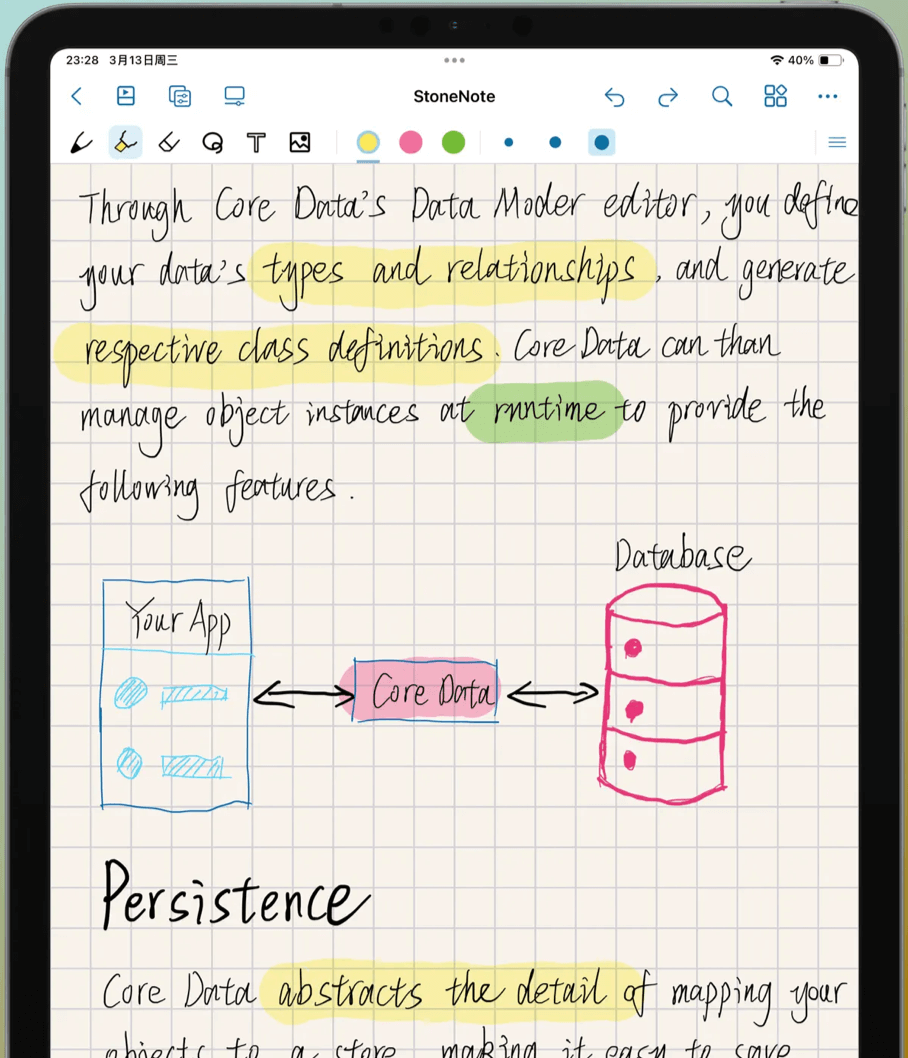 23:28 3月13日周三
40%
StoneNote
Through Core Data's Data Moder editor, you define
your data's types and relationships, and generate
respective class definitions. Core Data can than
manage object instances at runtime to provide the
following features.
Database
Your App
Core Data
Persistence
Core Data abstracts the detail of mapping your
objects to a store, making it easy to save